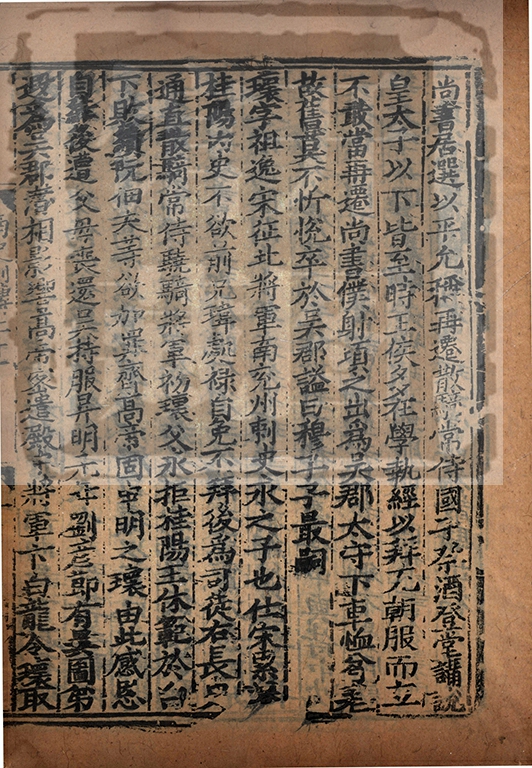 尚書居選以平允稱再遷散騎常侍國子祭酒登堂講說
皇太子以下皆至時王侯多在學執經以拜允朝服而立
不敢當再遷尚書僕射項之出為吳郡太守下車恤窮老
故舊莫不忻悅卒於吳郡諡曰穆子子最嗣
瓌字祖逸宋征北將軍南兗州刺史永之子也仕宋累
桂陽內史不欲前兄瑋處祿自免不拜後為司徒右長史
通直散騎常侍驍騎將軍初瓌父永拒桂陽王休範於白
下敗績阮佃夫等欲加罪齊高帝固申明之瓌由此感恩
自結後遭父母喪還吳持服昇明元年劉彥節有異圖弟
遐為吳郡潛相影響高帝密遣殿中將軍卞白龍令瓌取